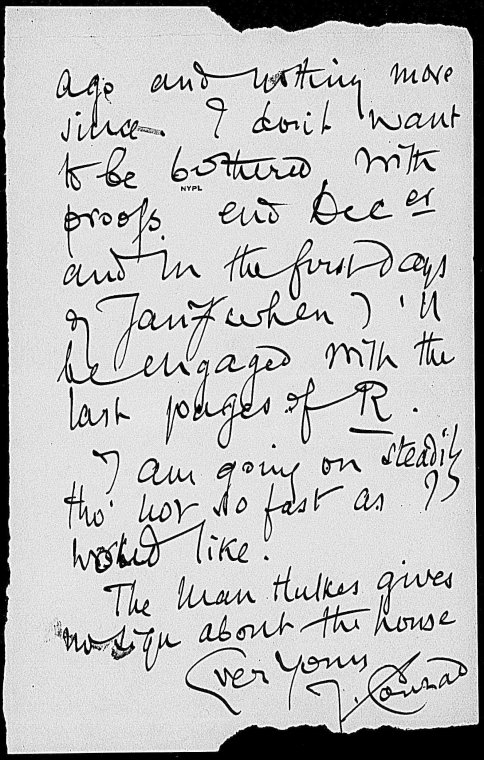 ago and nothing more
since. I don't want
to be bothered with
NYPL
proofs end Dec er
and in the first days
of Jany when I'll
be engaged with the
last pages of R.
I am going on steadily
tho' not so fast as I
would like.
The man Hulkes gives
no sign about the house
Ever Yours
J. Conrad